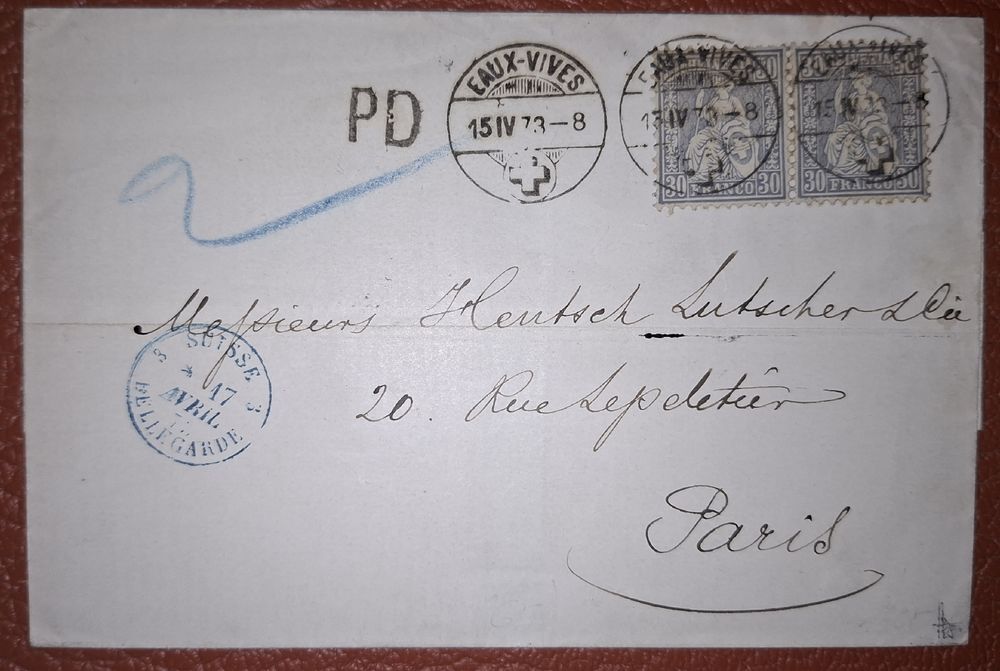 PD
EAUX-VIVES
15 IV 73-8
EAUX-VIVES
15 IV 73-8
EAUX-VIVES
15 IV 73-8
30 FRANCO 30
30 FRANCO 30
2
Messieurs Hentsch Lutscher & Cie
20. Rue Lepeletier
Paris
3 SUISSE 3
* 17
AVRIL
BELLEGARDE